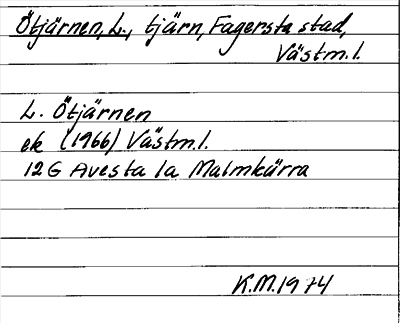 Ötjärnen, L., tjärn, Fagersta stad,
Västm.l.
L. Ötjärnen
ek (1966) Västm.l.
12G Avesta 1a Malmkärra
K.M.1974